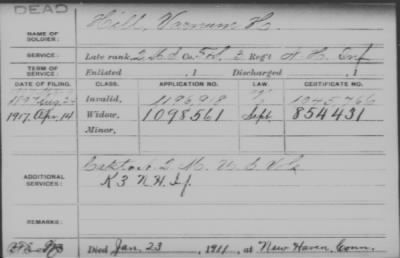 DEAD
NAME OF SOLDIER: Hill, Varnum H.
SERVICE: Late rank, 2 Lt Co. F&S, 3 Reg't N. H. Inf
TERM OF SERVICE: Enlisted , 1 Discharged , 1
DATE OF FILING. CLASS. APPLICATION NO. LAW. CERTIFICATE NO.
1897 Aug. 24 Invalid, 1195,918 1045,766
1917. Apr. 14 Widow, 1098,561 Sept. 854431
Minor,
ADDITIONAL SERVICES: Capt. & Q. M. U. S. Vols
K 3 N. H. Inf.
REMARKS:
Died Jan. 23 , 1911, at New Haven, Conn.